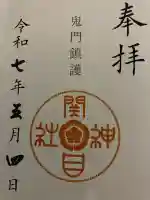 奉拝
鬼門鎮護
関目神社
令和七年五月四日